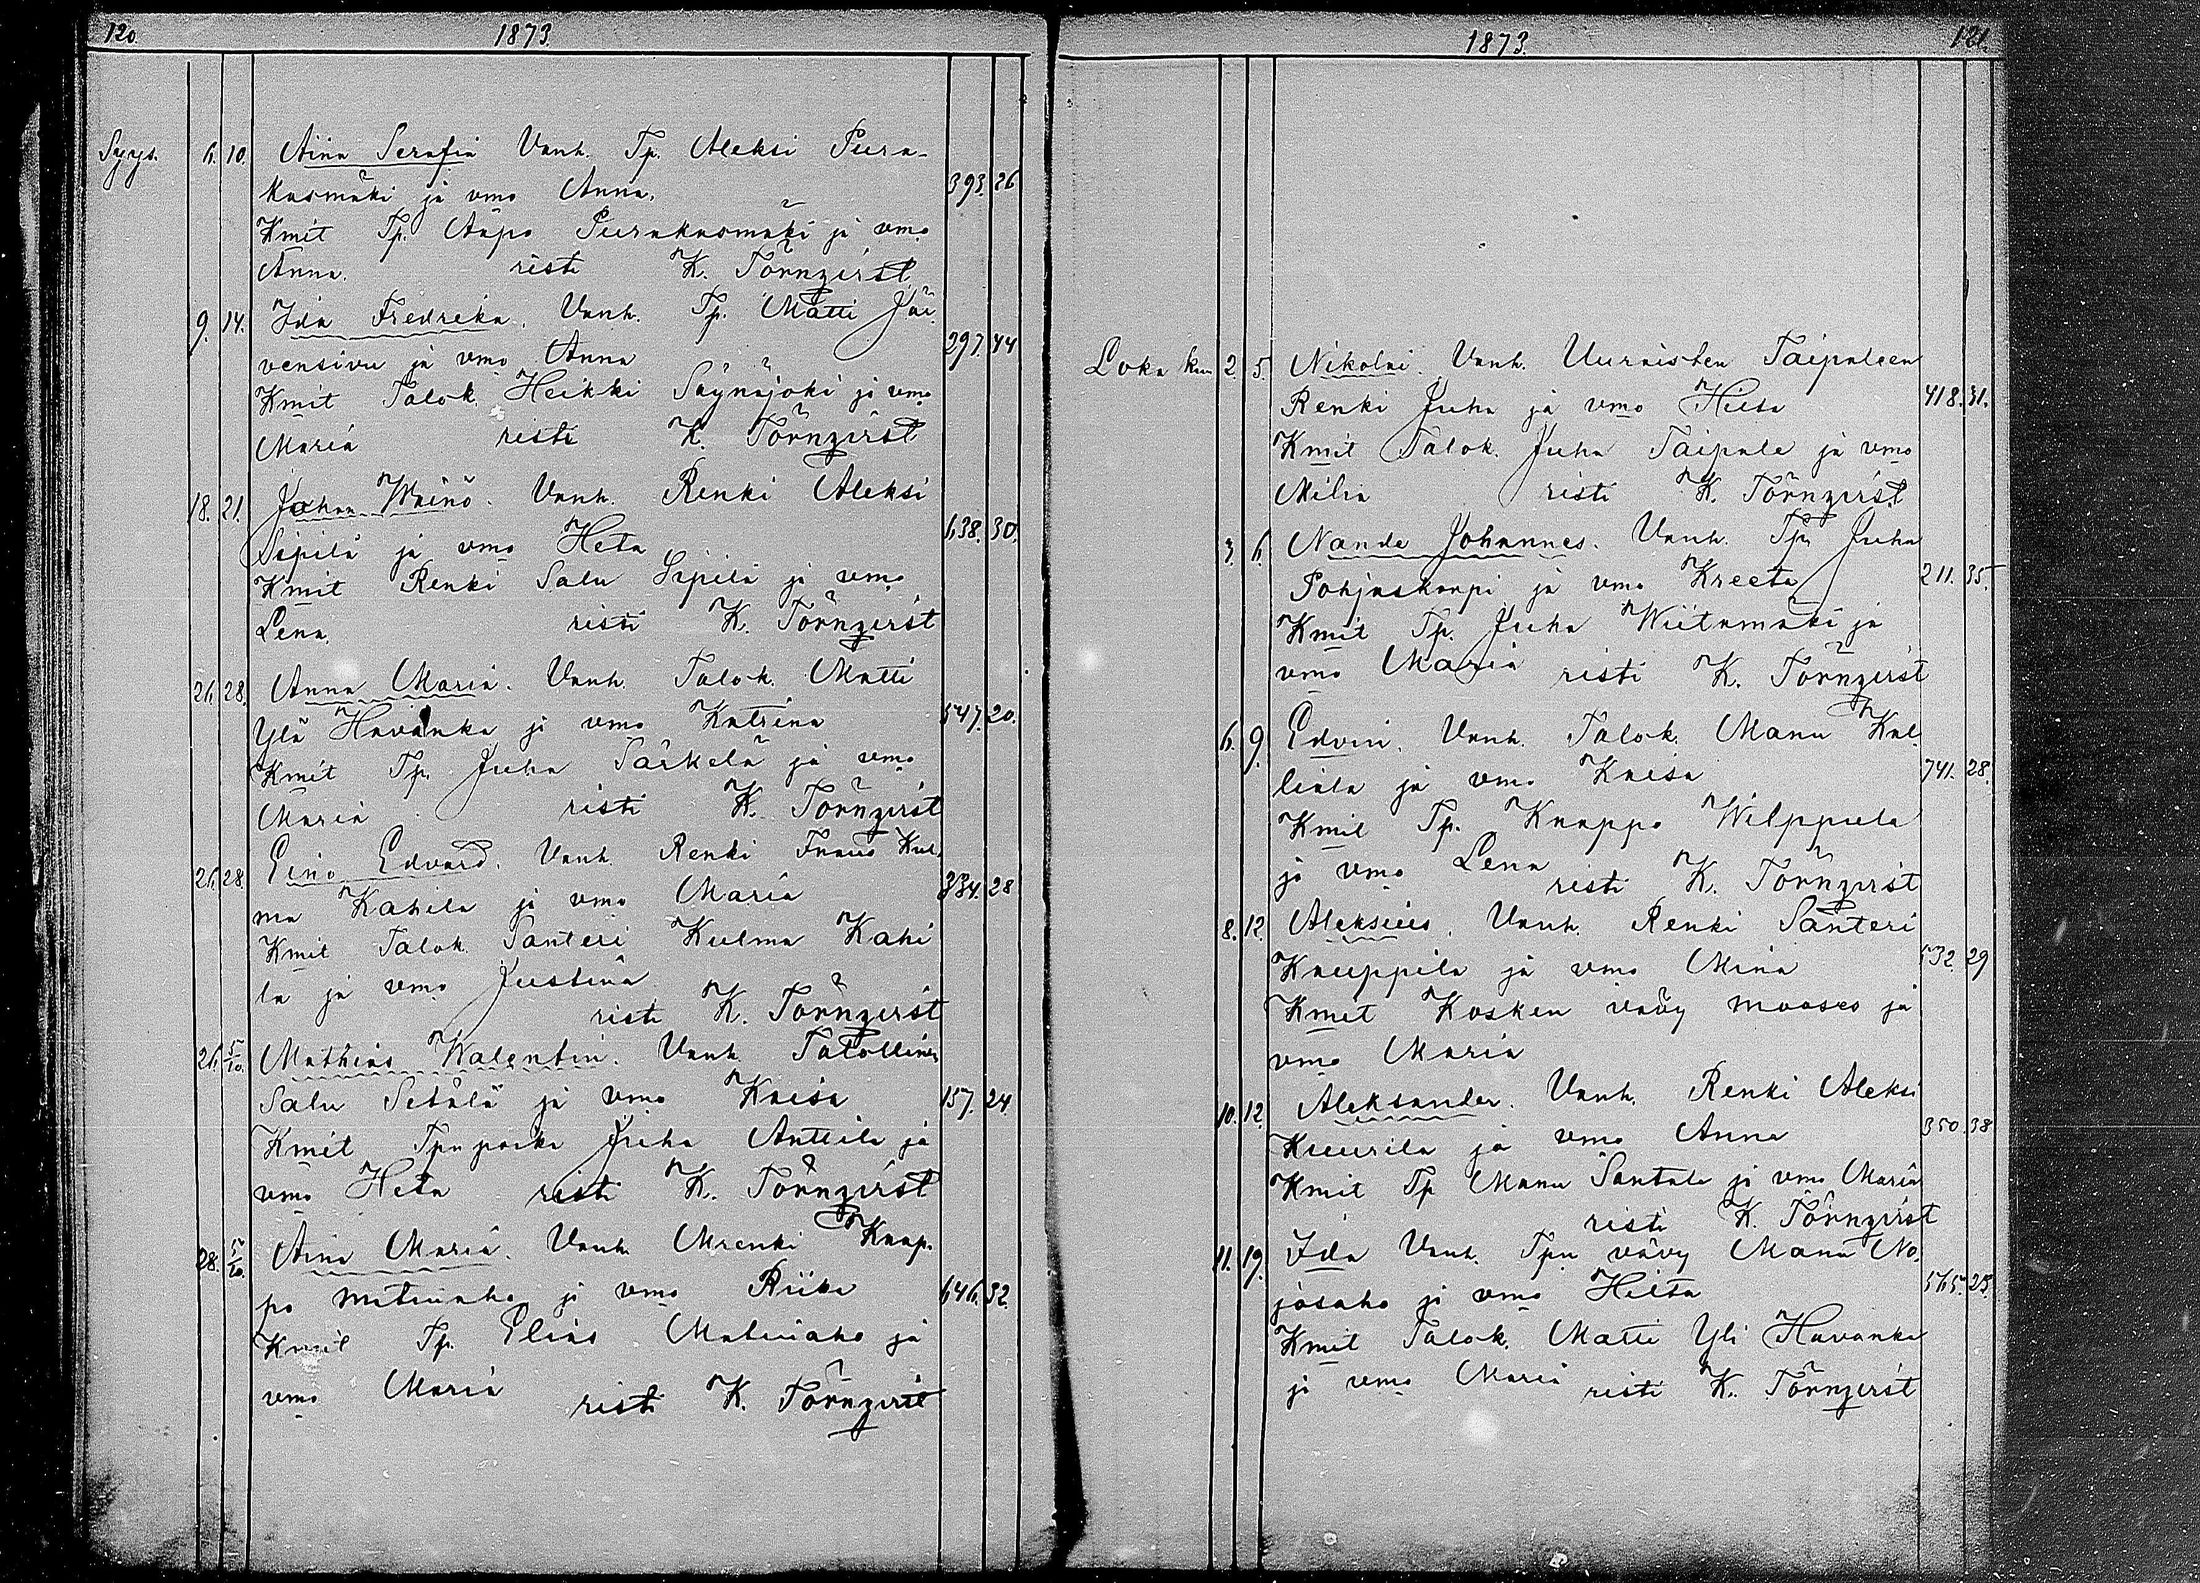 120. 1873.
Syys. 6. 10. Aina Serafia Vanh. Tp. Aleksi Pura-
kasmäki ja vmo Anna. 393. 26
Kmit Tp. Aapo Purakasmäki ja vmo
Anna. risti K. Törnqvist
9. 14. Ida Fredrika. Vanh. Tp. Matti Jär
vensivu ja vmo Anna 297. 44
Kmit Talok. Heikki Säynäjoki ja vmo
Maria risti K. Törnqvist
18. 21. Johan Wäinö. Vanh. Renki Aleksi
Sipilä ja vmo Heta 638. 30.
Kmit Renki Salu Sipilä ja vmo
Lena. risti K. Törnqvist
26. 28. Anna Maria. Vanh. Talok. Matti
Ylä Havanka ja vmo Katrina 547. 20.
Kmit Tp. Juha Särkelä ja vmo
Maria risti K. Törnqvist
26. 28. Eino Edvard. Vanh. Renki Frans Kul
ma Kahila ja vmo Maria 334. 28
Kmit Talok. Santeri Kulma Kahi
la ja vmo Justina
risti K. Törnqvist
26. 5/10. Mathias Walentin. Vanh. Talollinen
Salu Setälä ja vmo Kaisa 157. 24
Kmit Tpn poika Juha Anttila ja
vmo Heta risti K. Törnqvist
28. 5/10. Aina Maria. Vanh. Mrenki Kaap.
po Matinaho ja vmo Riika 646. 32.
Kmit Tp. Elias Matinaho ja
vmo Maria risti K. Törnqvist
1873. 121.
Loka kuu 2. 5. Nikolai. Vanh. Uuraisten Taipaleen
Renki Juha ja vmo Hilta 418. 31.
Kmit Talok. Juha Taipale ja vmo
Milia risti K. Törnqvist
3. 6. Nande Johannes. Vanh. Tp. Juha
Pohjaskorpi ja vmo Kreeta 211. 35
Kmit Tp. Juha Wiitamäki ja
vmo Maria risti K. Törnqvist
6. 9. Edvin. Vanh. Talok. Manu Kal
liala ja vmo Kaisa 741. 28.
Kmit Tp. Kaappo Wilppula
ja vmo Lena risti K. Törnqvist
8. 12. Aleksius. Vanh. Renki Santeri
Knuppila ja vmo Mina 532. 29
Kmit Kosken vävy Mooses ja
vmo Maria
10. 12. Aleksander. Vanh. Renki Aleksi
Kuurila ja vmo Anna 350. 38
Kmit Tp Manu Santala ja vmo Maria
risti K. Törnqvist
11. 19. Ida Vanh. Tpn vävy Manu No.
josaho ja vmo Hilta 565. 23.
Kmit Talok. Matti Yli Havanka
ja vmo Maria risti K. Törnqvist